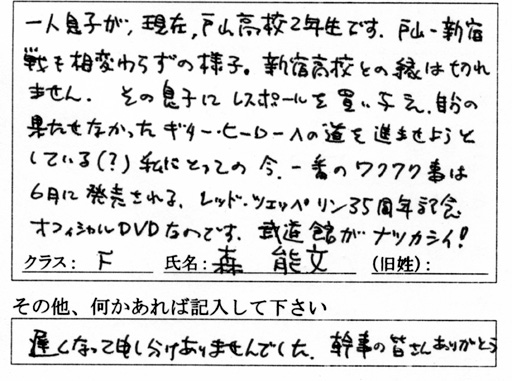 一人息子が、現在、戸山高校2年生です。戸山－新宿
戦も相変わらずの様子。新宿高校との縁は切れ
ません。その息子にレスポールを買い与え、自分の
果たせなかったギター・ヒーローへの道を進ませようと
している(?)私にとっての今、一番のワクワク事は
6月に発売される、レッド・ツェッペリン35周年記念
オフィシャルDVDなのです。武道館がナツカシイ!
クラス: F 氏名: 森 能文 (旧姓):
その他、何かあれば記入して下さい
遅くなって申し分けありませんでした。幹事の皆さんありがとう